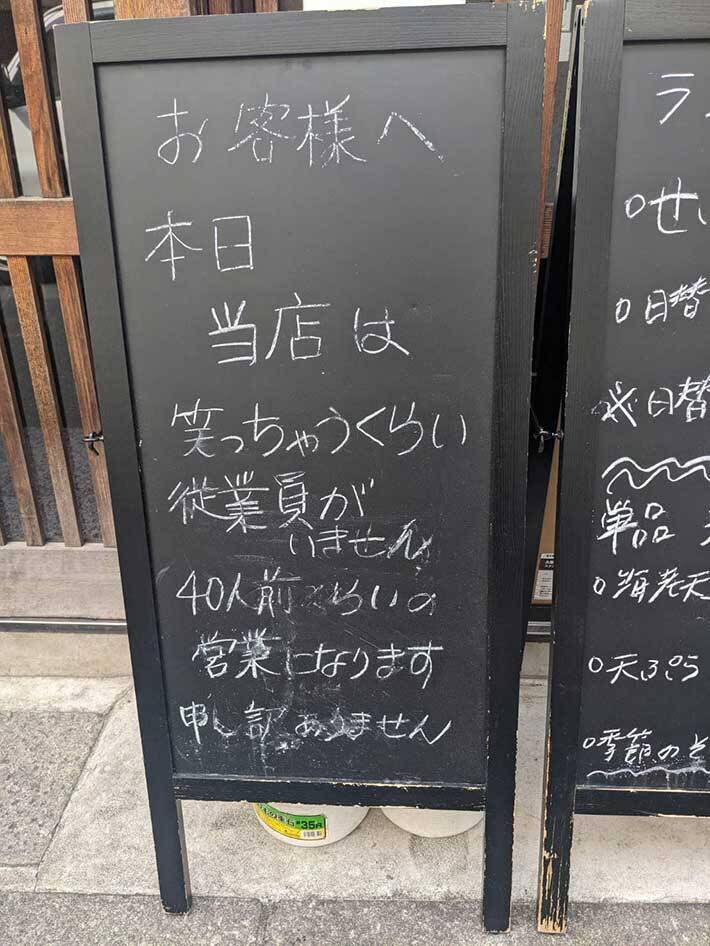 お客様へ
本日
当店は
笑っちゃうくらい
従業員が
いません
40人前くらいの
営業になります
申し訳ありません
ラ
○せい
○日替
※日替
単品
○海老天
○天ぷら
○季節のそ
#35A